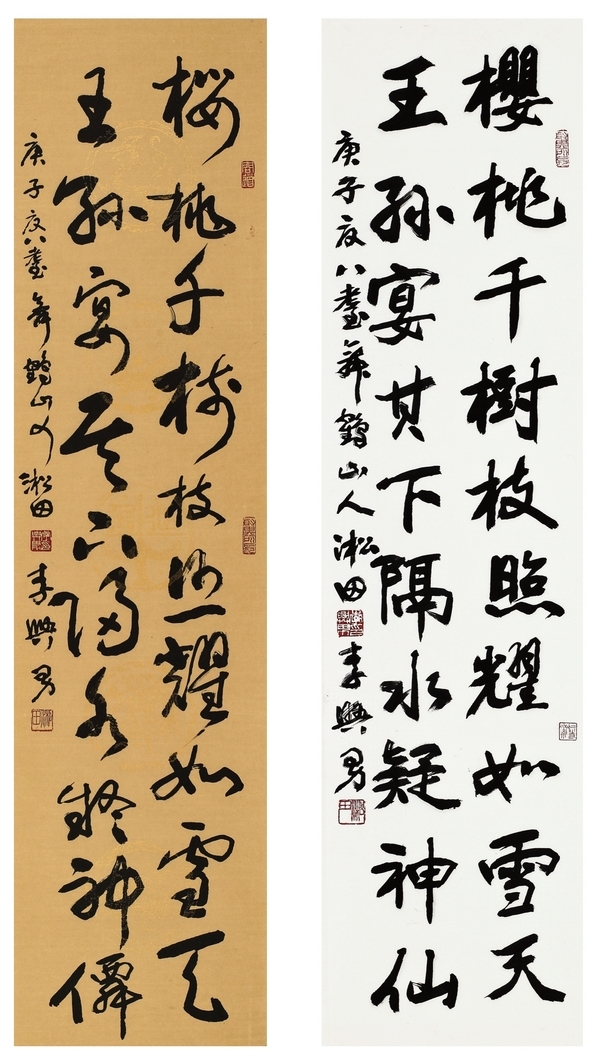 櫻桃千樹枝照耀如雪天
王孫宴其下隔水疑神僊
庚子夏八耋舞鶴山人淞田李興男
櫻桃千樹枝照耀如雪天
王孫宴其下隔水疑神仙
庚子夏八耋舞鶴山人淞田李興男